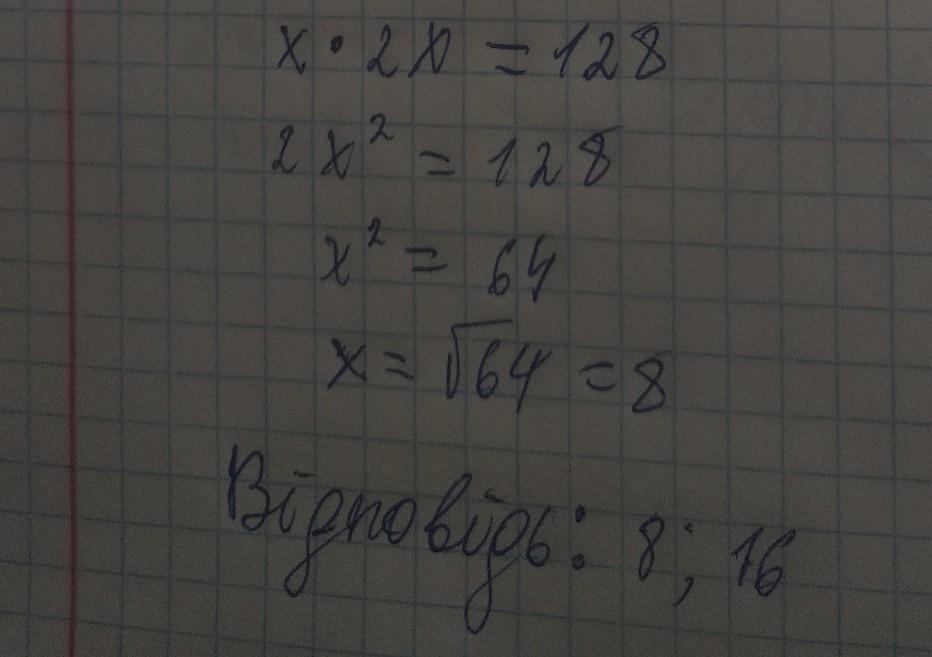 x · 2x = 128
2x² = 128
x² = 64
x = √64 = 8
Відповідь: 8; 16